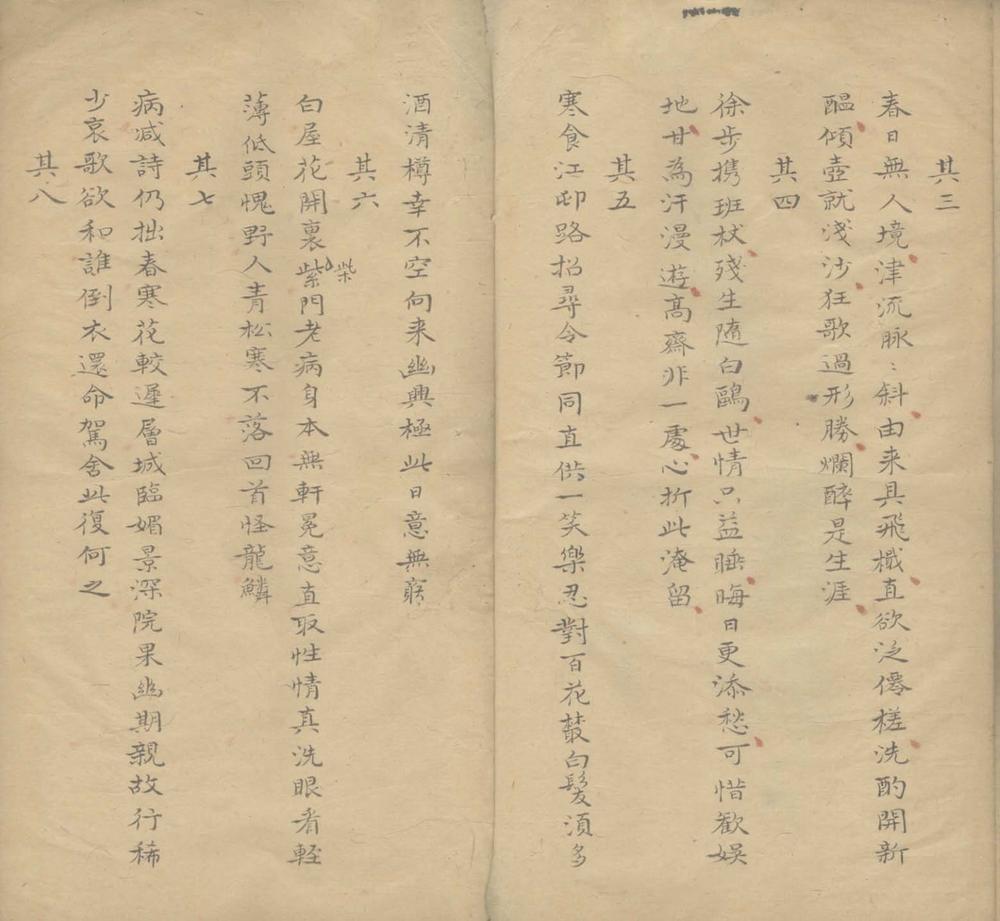 其三
春日無人境津流脉〻斜由来具飛檝直欲泛僊槎洗酌開新
醖傾壺就浅沙狂歌過形勝爛醉是生涯
其四
徐步携班杖殘生隨白鷗世情只益睡晦日更添愁可惜歡娛
地甘為汗漫遊高齋非一處心折此淹留
其五
寒食江邨路招尋令節同直供一笑樂忍對百花叢白髮須多
酒清樽幸不空向来幽興極此日意無窮
其六
白屋花開裏紫門老病身本無軒冕意直取性情真洗眼看輕
柴
薄低頭愧野人青松寒不落回首怪龍鱗
其七
病减詩仍拙春寒花較遲層城臨媚景深院果幽期親故行稀
少哀歌欲和誰倒衣還命駕舍此復何之
其八